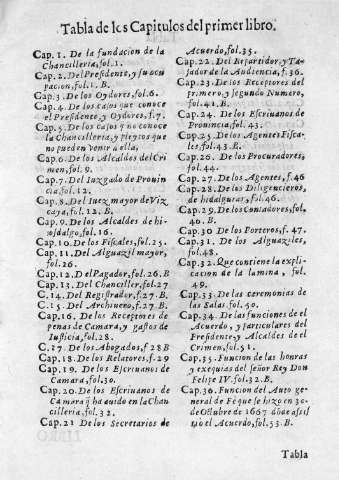 Tabla de los Capitulos del primer libro.
Cap. 1. De la fundacion de la
Chancilleria, fol. 1.
Cap. 2. Del Presidente, y su ocu
pacion, fol. 1. B.
Cap. 3. De los Oydores, fol. 6.
Cap. 4. De los casos que conoce
el Presidente, y Oydores, f. 7.
Cap. 5. De los casos q̃ no conoce
la Chancilleria, y pleytos que
no pueden venir a ella,
Cap. 6. De los Alcaldes del Cri
men, fol. 9.
Cap. 7. Del Iuzgado de Prouin
cia, fol. 12.
Cap. 8. Del Iuez mayor de Viz
caya, fol. 12. B.
Cap. 9. De los Alcaldes de hi-
josdalgo, fol. 16.
Cap. 10. De los Fiscales, fol. 25.
Cap. 11. Del Alguazil mayor,
fol. 26.
Cap. 12. Del Pagador, fol. 26. B
Cap. 13. Del Chanciller, fol. 27
C. 14. Del Registrador, f. 27. B.
C. 15. Del Archiuero, f. 27. B.
Cap. 16. De los Receptores de
penas de Camara, y gastos de
Iusticia, fol. 28.
C. 17. De los Abogados, f. 28 B
Cap. 18. De los Relatores. f. 29
Cap. 19. De los Escriuanos de
Camara, fol. 30.
Cap. 20. De los Escriuanos de
Camara q̃ ha auido en la Chan
cilleria, fol. 32.
Cap. 21 De los Secretarios de
Acuerdo, fol. 35.
Cap. 22. Del Repartidor, y Ta-
sador de la Audiencia, f. 36.
Cap. 23. De los Receptores del
primero, y segundo Numero,
fol. 41. B.
Cap. 24. De los Escriuanos de
Prouincia, fol. 43.
Cap. 25 De los Agentes Fisca-
les, fol. 43. B.
Cap. 26. De los Procuradores,
fol. 44.
Cap. 27. De los Agentes, f. 46
Cap. 28. De los Diligencieros,
de hidalguias, fol. 46.
Cap. 29 De los Contadores, fol,
46. B.
Cap. 30 De los Porteros, f. 47.
Cap. 31. De los Alguaziles,
fol. 48.
Cap. 32. Que contiene la expli-
cacion de la lamina, fol.
49.
Cap. 33. De las ceremonias de
las Salas. fol. 50.
Cap. 34. De las funciones de el
Acuerdo, y particulares del
Presidente, y Alcaldes de el
Crimen, fol. 51.
Cap. 35. Funcion de las honras
y exequias del señor Rey Don
Felipe IV. fol. 32. B.
Cap. 36. Funcion del Auto ge-
neral de Fè que se hizo en 30-
de Octubre de 1667 dõde assis
tiò el Acuerdo, fol. 53. B.
Tabla